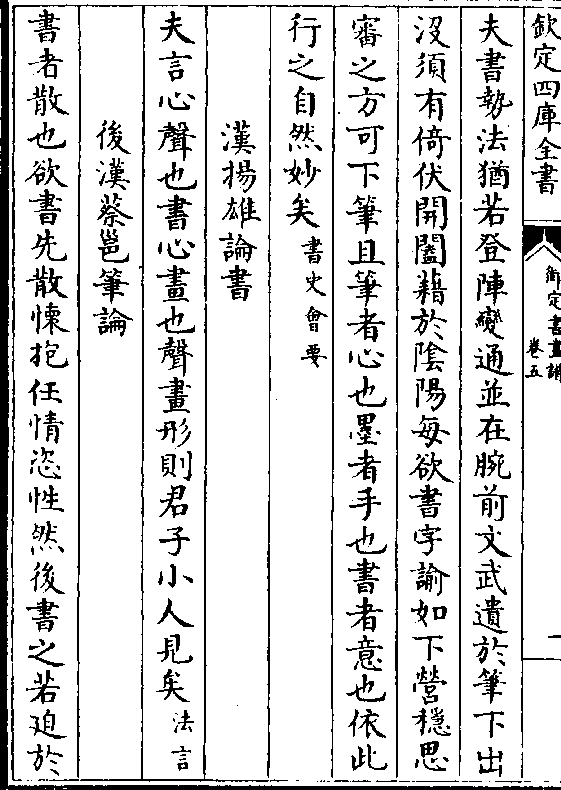 欽定四庫全書
御定書畫譜
卷五
一
夫書勢法猶若登陣變通並在腕前文武遺於筆下出
沒須有倚伏開闔藉於陰陽每欲書字諭如下營穩思
審之方可下筆且筆者心也墨者手也書者意也依此
行之自然妙矣書史會要
漢揚雄論書
夫言心聲也書心畫也聲畫形則君子小人見矣法言
後漢蔡邕筆論
書者散也欲書先散懷抱任情恣性然後書之若迫於